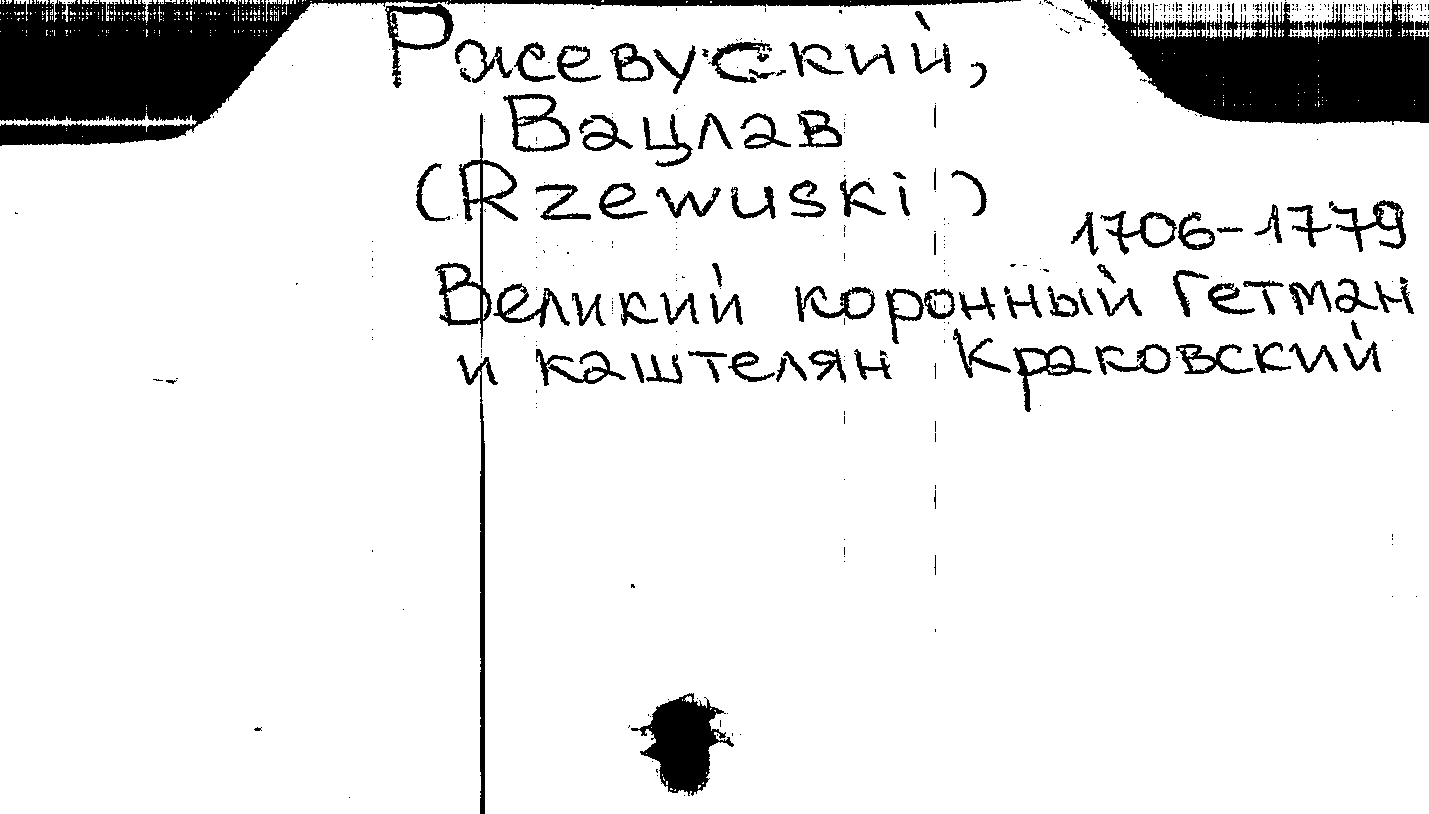 Ржевуский,
Вацлав
(Rzewuski)
1706-1779
Великий коронный Гетман
и каштелян Краковский